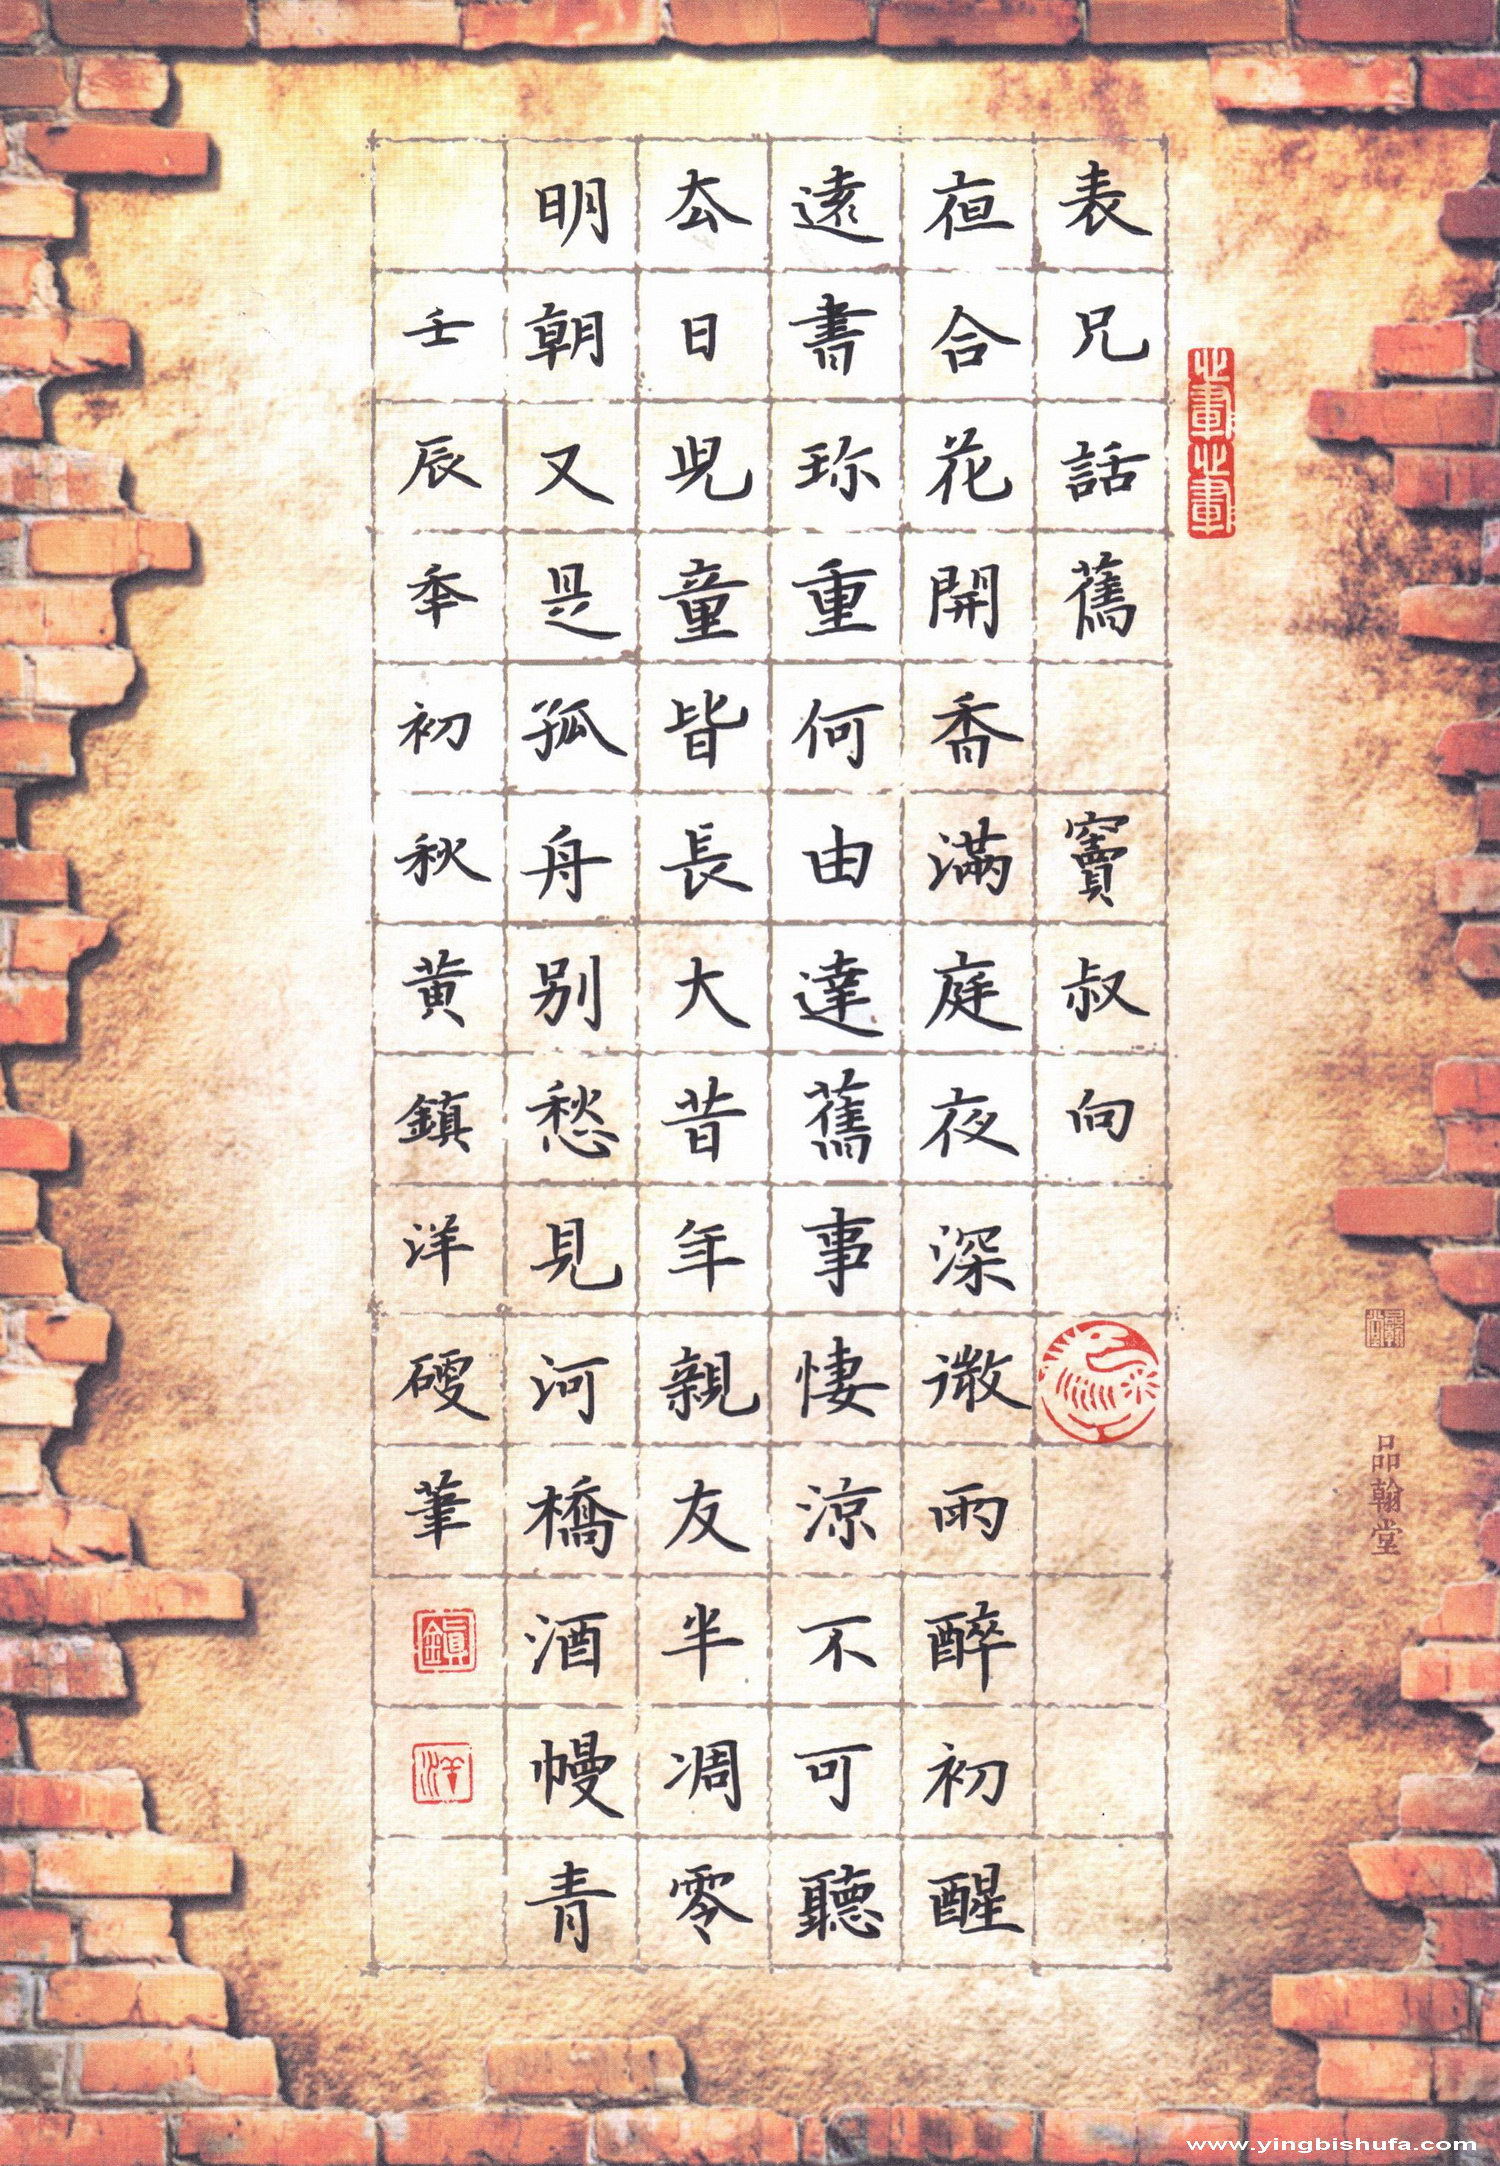 表兄話舊 竇叔向
夜合花開香滿庭夜深微雨醉初醒
遠書珍重何由達舊事悽涼不可聽
去日兒童皆長大昔年親友半凋零
明朝又是孤舟別愁見河橋酒幔青
壬辰年初秋黃鎮洋硬筆
鎮
洋
品翰堂
www.yingbishufa.com